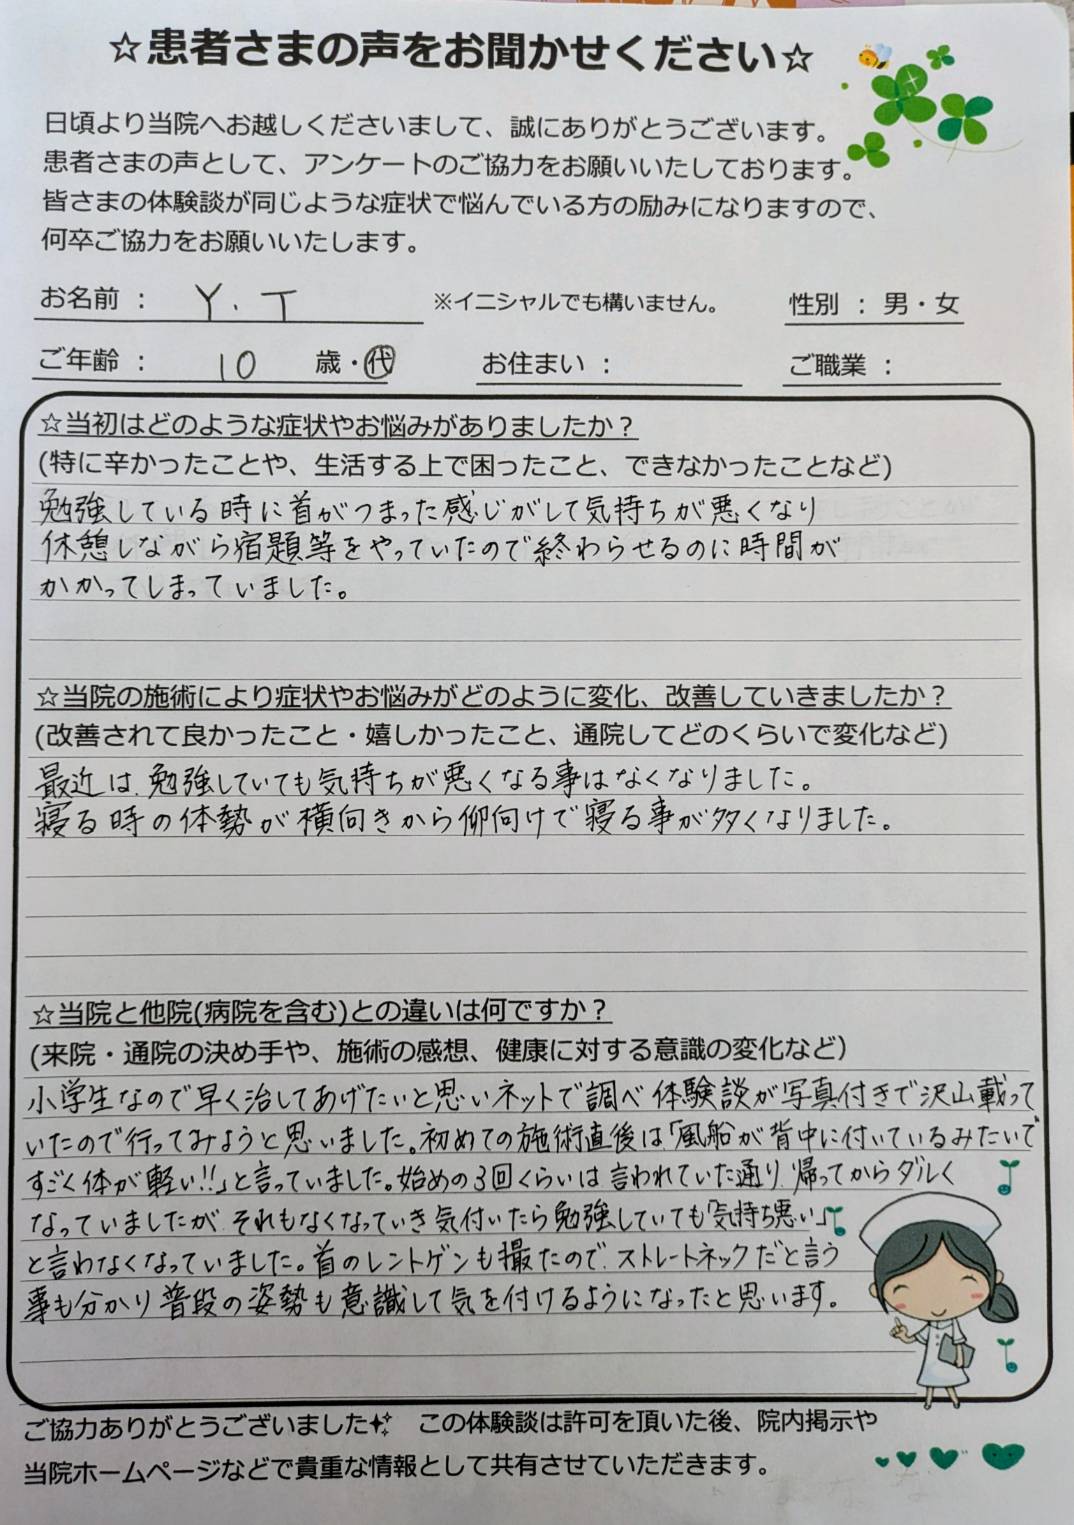 ☆患者さまの声をお聞かせください☆
日頃より当院へお越しくださいまして、誠にありがとうございます。
患者さまの声として、アンケートのご協力をお願いいたしております。
皆さまの体験談が同じような症状で悩んでいる方の励みになりますので、
何卒ご協力をお願いいたします。
お名前 ： Y.T ※イニシャルでも構いません。 性別 ： 男・女
ご年齢 ： 10 歳・代 お住まい ： ご職業 ：
☆当初はどのような症状やお悩みがありましたか？
(特に辛かったことや、生活する上で困ったこと、できなかったことなど)
勉強している時に首がつまった感じがして気持ちが悪くなり
休憩しながら宿題等をやっていたので終わらせるのに時間が
かかってしまっていました。
☆当院の施術により症状やお悩みがどのように変化、改善していきましたか？
(改善されて良かったこと・嬉しかったこと、通院してどのくらいで変化など)
最近は、勉強していても気持ちが悪くなる事はなくなりました。
寝る時の体勢が横向きから仰向けで寝る事が多くなりました。
☆当院と他院(病院を含む)との違いは何ですか？
(来院・通院の決め手や、施術の感想、健康に対する意識の変化など)
小学生なので早く治してあげたいと思いネットで調べ体験談が写真付きで沢山載って
いたので行ってみようと思いました。初めての施術直後は「風船が背中に付いているみたいで
すごく体が軽い!!」と言っていました。始めの3回くらいは言われていた通り、帰ってからダルく
なっていましたが、それもなくなっていき気付いたら勉強していても「気持ち悪い」
と言わなくなっていました。首のレントゲンも撮たので、ストレートネックだと言う
事も分かり普段の姿勢も意識して気を付けるようになったと思います。
ご協力ありがとうございました この体験談は許可を頂いた後、院内掲示や
当院ホームページなどで貴重な情報として共有させていただきます。